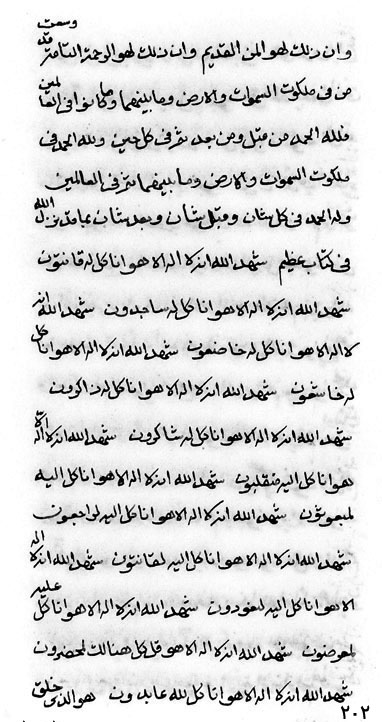 وسعت
وان ذلك لهو المن القديم وان ذلك لهو الرحمة التامة
من فى ملكوت السموات والارض وما بينهما وما كانوا فى العالمين
فلله الحمد من قبل ومن بعد ثم فى كل حين ولله الحمد فى
ملكوت السموات والارض وما بينهما ثم فى العالمين
وله الحمد فى كل شان وقبل شان وبعد شان عما قد نزل الله
فى كتاب عظيم شهد الله انه لا اله الا هو انا كل له قانتون
شهد الله انه لا اله الا هو انا كل له ساجدون شهد الله انه
لا اله الا هو انا كل له خاضعون شهد الله انه لا اله الا هو انا كل
له خاشعون شهد الله انه لا اله الا هو انا كل له ذاكرون
شهد الله انه لا اله الا هو انا كل له شاكرون شهد الله انه لا اله الا
هو انا كل اليه منقلبون شهد الله انه لا اله الا هو انا كل اليه
لمبعوثون شهد الله انه لا اله الا هو انا كل اليه لراجعون
شهد الله انه لا اله الا هو انا كل اليه لقانتون شهد الله انه لا اله
الا هو انا كل اليه لعودون شهد الله انه لا اله الا هو انا كل عليه
لمعرضون شهد الله انه لا اله الا هو قل كل هنالك لمحضرون
شهد الله انه لا اله الا هو انا كل لله عابدون هو الذى خلق
٢٠٢